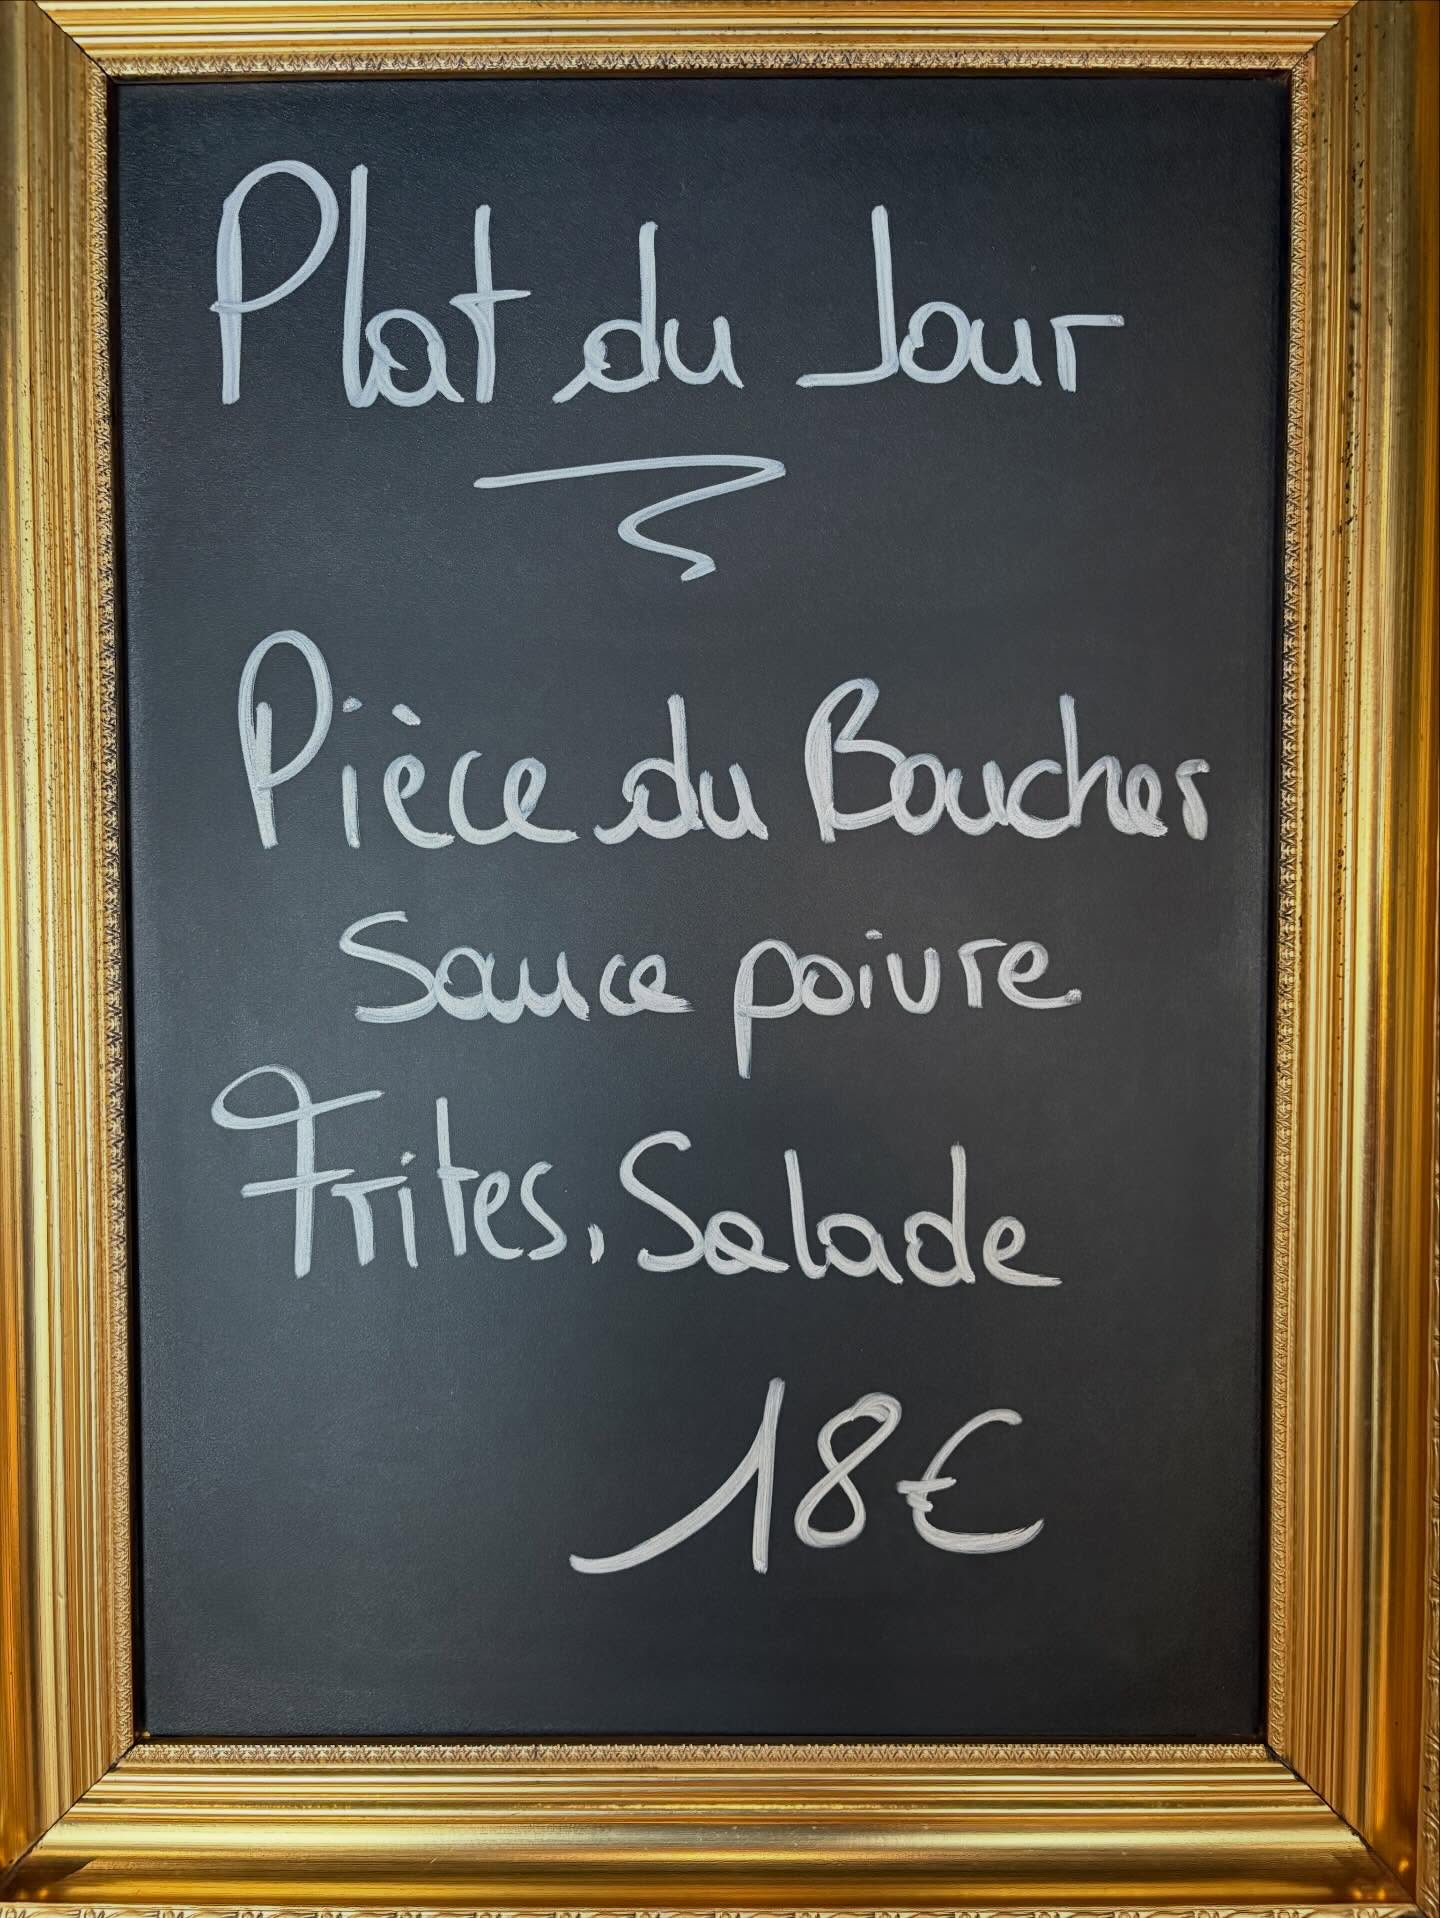 Plat du Jour
Pièce du Boucher
Sauce poivre
Frites, Salade
18€